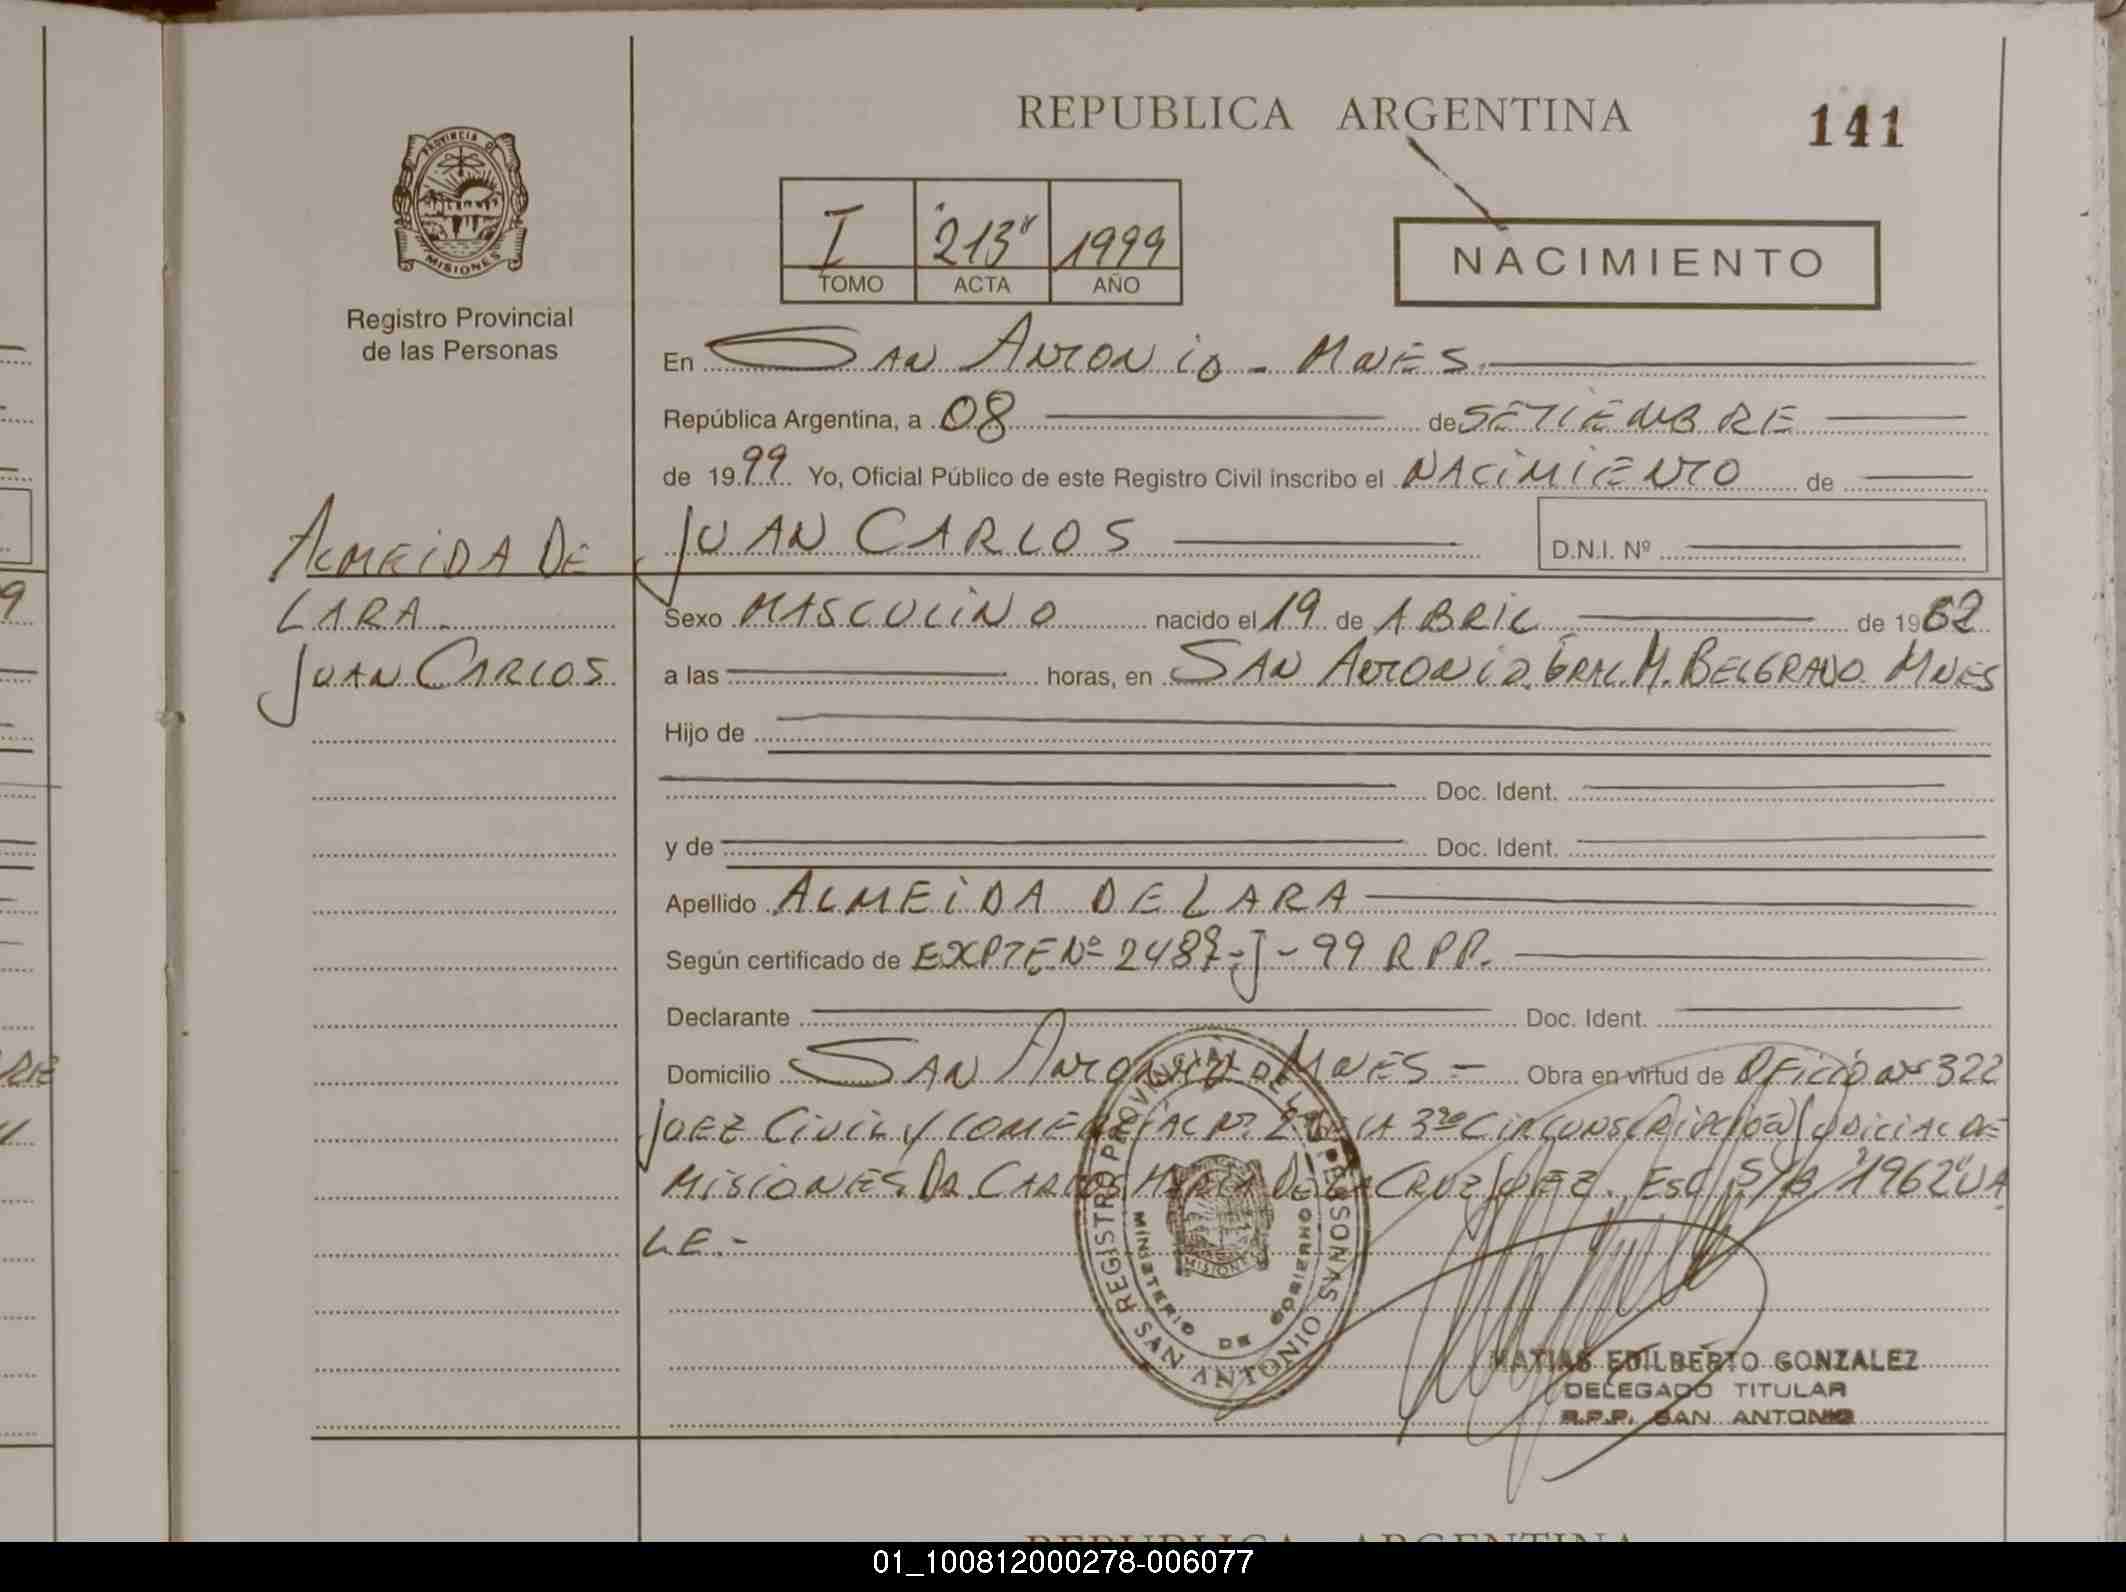 REPUBLICA ARGENTINA
141
PROVINCIA DE
MISIONES
Registro Provincial
de las Personas
I "213" 1999
TOMO ACTA AÑO
NACIMIENTO
En SAN ANTONIO - MNES.
República Argentina, a 08 de SETIEMBRE
de 1999 Yo, Oficial Público de este Registro Civil inscribo el NACIMIENTO de
JUAN CARLOS D.N.I. Nº
ALMEIDA DE
LARA
JUAN CARLOS
Sexo MASCULINO nacido el 19 de ABRIL de 1962
a las horas, en SAN ANTONIO. GRAL. M. BELGRANO MNES
Hijo de
Doc. Ident.
y de Doc. Ident.
Apellido ALMEIDA DE LARA
Según certificado de EXPTE Nº 2487-J-99 RPP.
Declarante Doc. Ident.
Domicilio SAN ANTONIO MNES - Obra en virtud de OFICIO Nº 322
JUEZ CIVIL Y COMERCIAL Nº 2 DE LA 3ra CIRCUNSCRIPCIÓN JUDICIAL DE
MISIONES DR. CARLOS MARIA DE LA CRUZ JUEZ. ESC S/B "1962" VA
LE.-
REGISTRO PROVINCIAL DE LAS PERSONAS
SAN ANTONIO
MINISTERIO DE GOBIERNO
MISIONES
MATIAS EDILBERTO GONZALEZ
DELEGADO TITULAR
R.P.P. SAN ANTONIO
REPUBLICA ARGENTINA
01_100812000278-006077